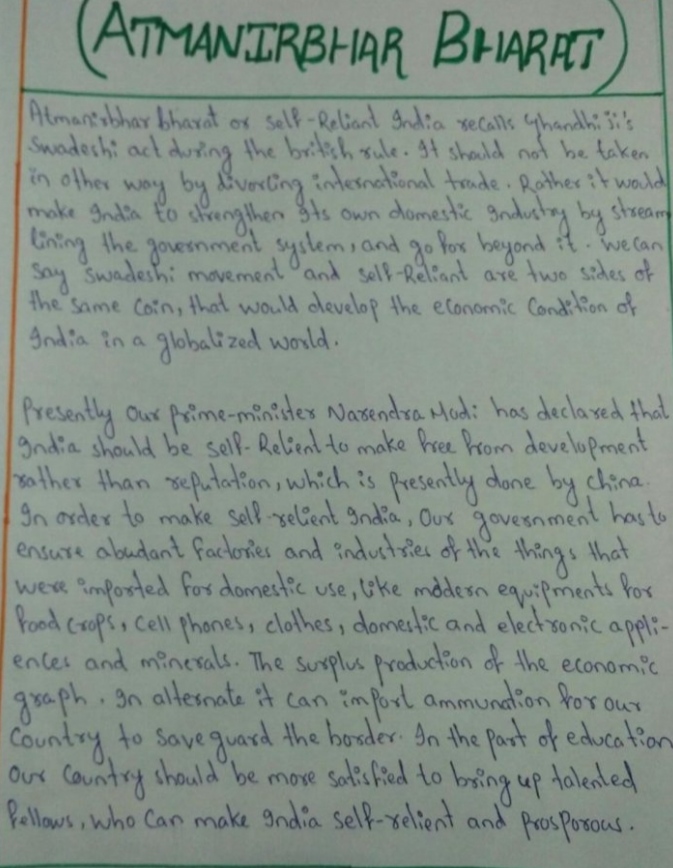 (ATMANIRBHAR BHARAT)
Atmanirbhar bharat or self-Reliant India recalls Ghandhi Ji's
Swadeshi act during the british rule. It should not be taken
in other way by divorcing international trade. Rather it would
make India to strengthen its own domestic industry by stream
lining the government system, and go for beyond it. We can
say swadeshi movement and self-Reliant are two sides of
the same coin, that would develop the economic Condition of
India in a globalized world.
Presently our Prime-minister Narendra Modi has declared that
India should be self-Relient to make free from development
rather than reputation, which is presently done by china.
In order to make self-relient India, Our government has to
ensure abudant factories and industries of the things that
were imported for domestic use, like modern equipments for
food crops, cell phones, clothes, domestic and electronic appli-
ences and minerals. The surplus production of the economic
graph. In alternate it can import ammunation for our
Country to save guard the border. In the part of education
our Country should be more satisfied to bring up talented
fellows, who can make India self-relient and prosporous.